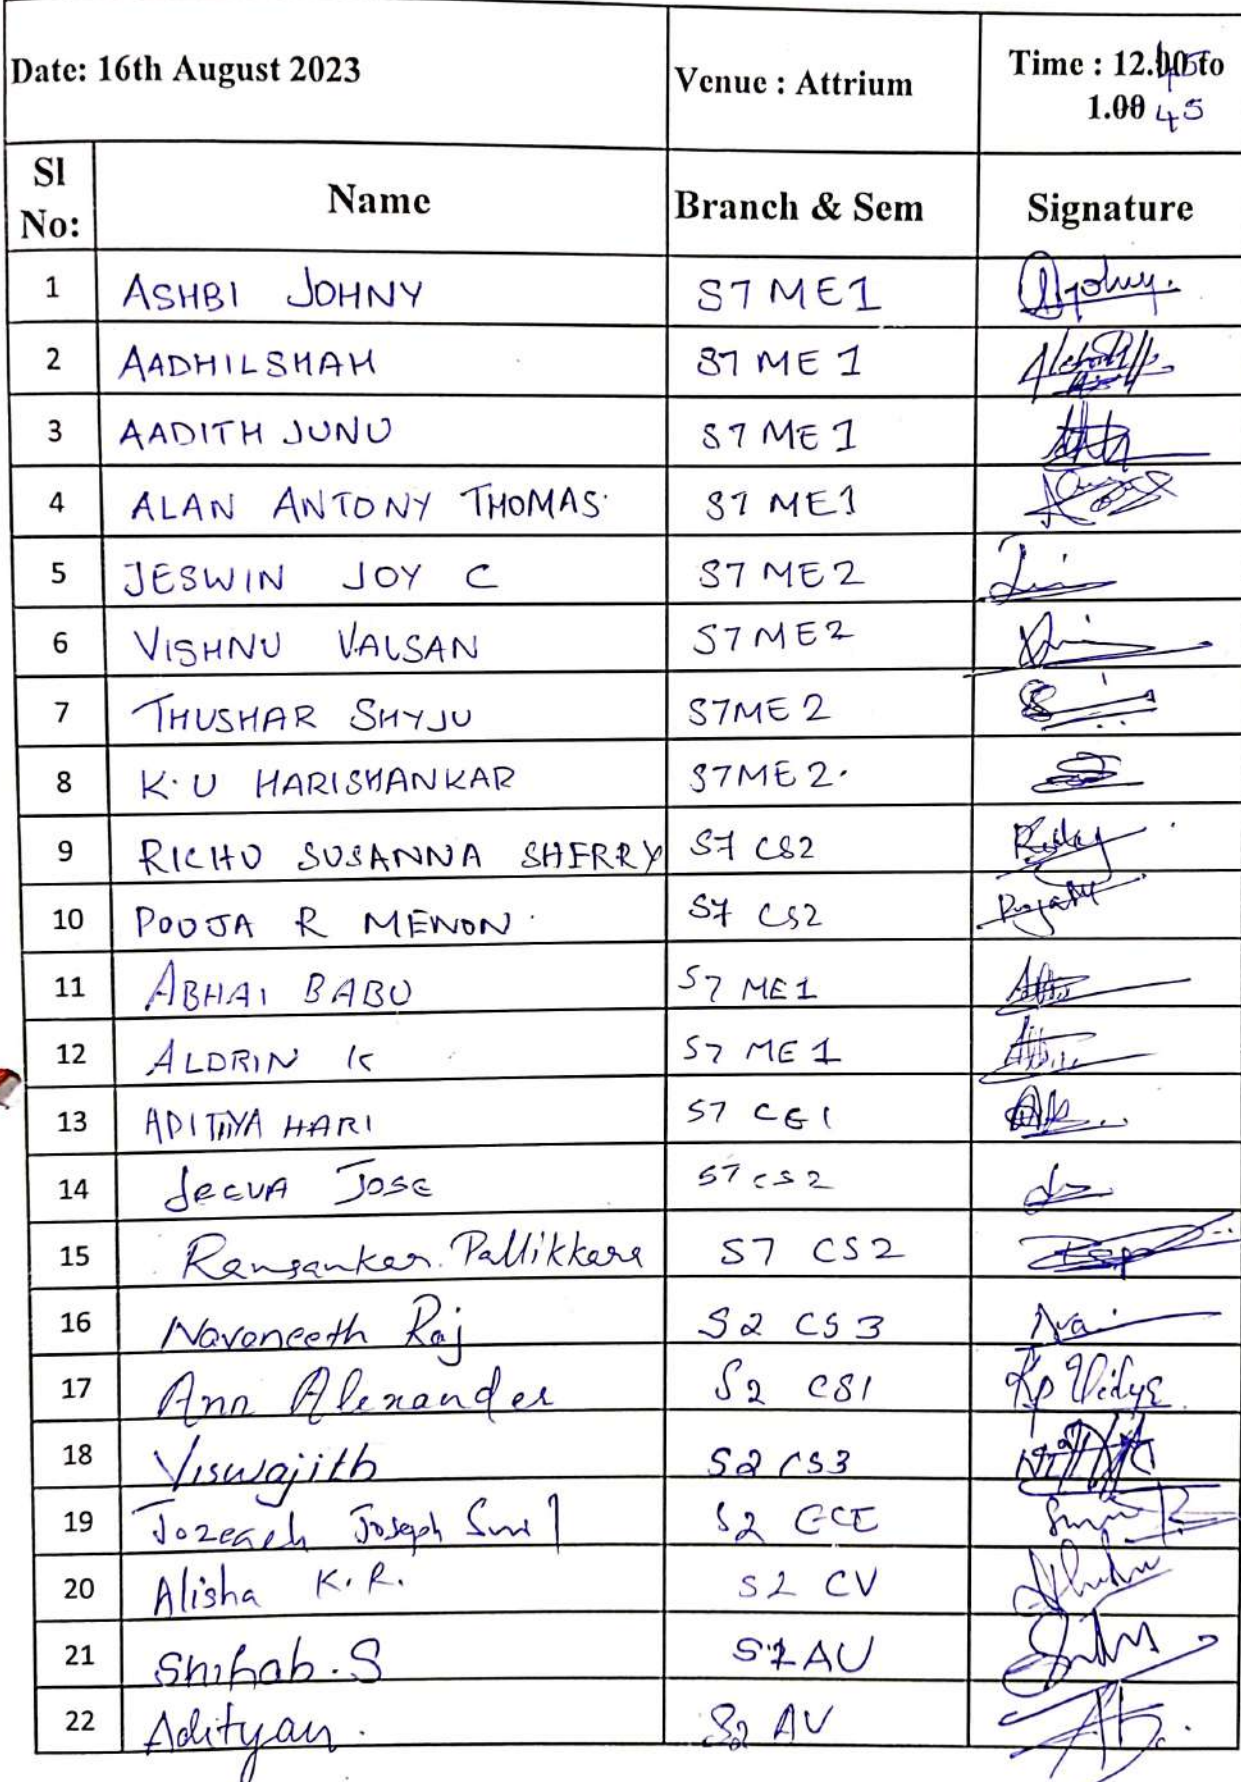 Date: 16th August 2023 Venue : Attrium Time : 12.00 45 to
1.00 45
Sl No: Name Branch & Sem Signature
1 ASHBI JOHNY S7 ME1
2 AADHILSHAH S7 ME 1
3 AADITH JUNU S7 ME 1
4 ALAN ANTONY THOMAS S7 ME1
5 JESWIN JOY C S7 ME 2
6 VISHNU VALSAN S7 ME2
7 THUSHAR SHYJU S7ME 2
8 K.U HARISHANKAR S7ME 2.
9 RICHU SUSANNA SHERRY S7 CS2
10 POOJA R MENON S7 CS2
11 ABHAI BABU S7 ME 1
12 ALDRIN K S7 ME 1
13 ADITHYA HARI S7 CE1
14 Jeeva Jose S7 CS2
15 Ramsankar Pallikkara S7 CS2
16 Navaneeth Raj S2 CS3
17 Ann Alexander S2 CS1
18 Viswajith S2 CS3
19 Joseph S2 ECE
20 Alisha K.R. S2 CV
21 Shihab.S S2 AU
22 Adityan. S2 AU